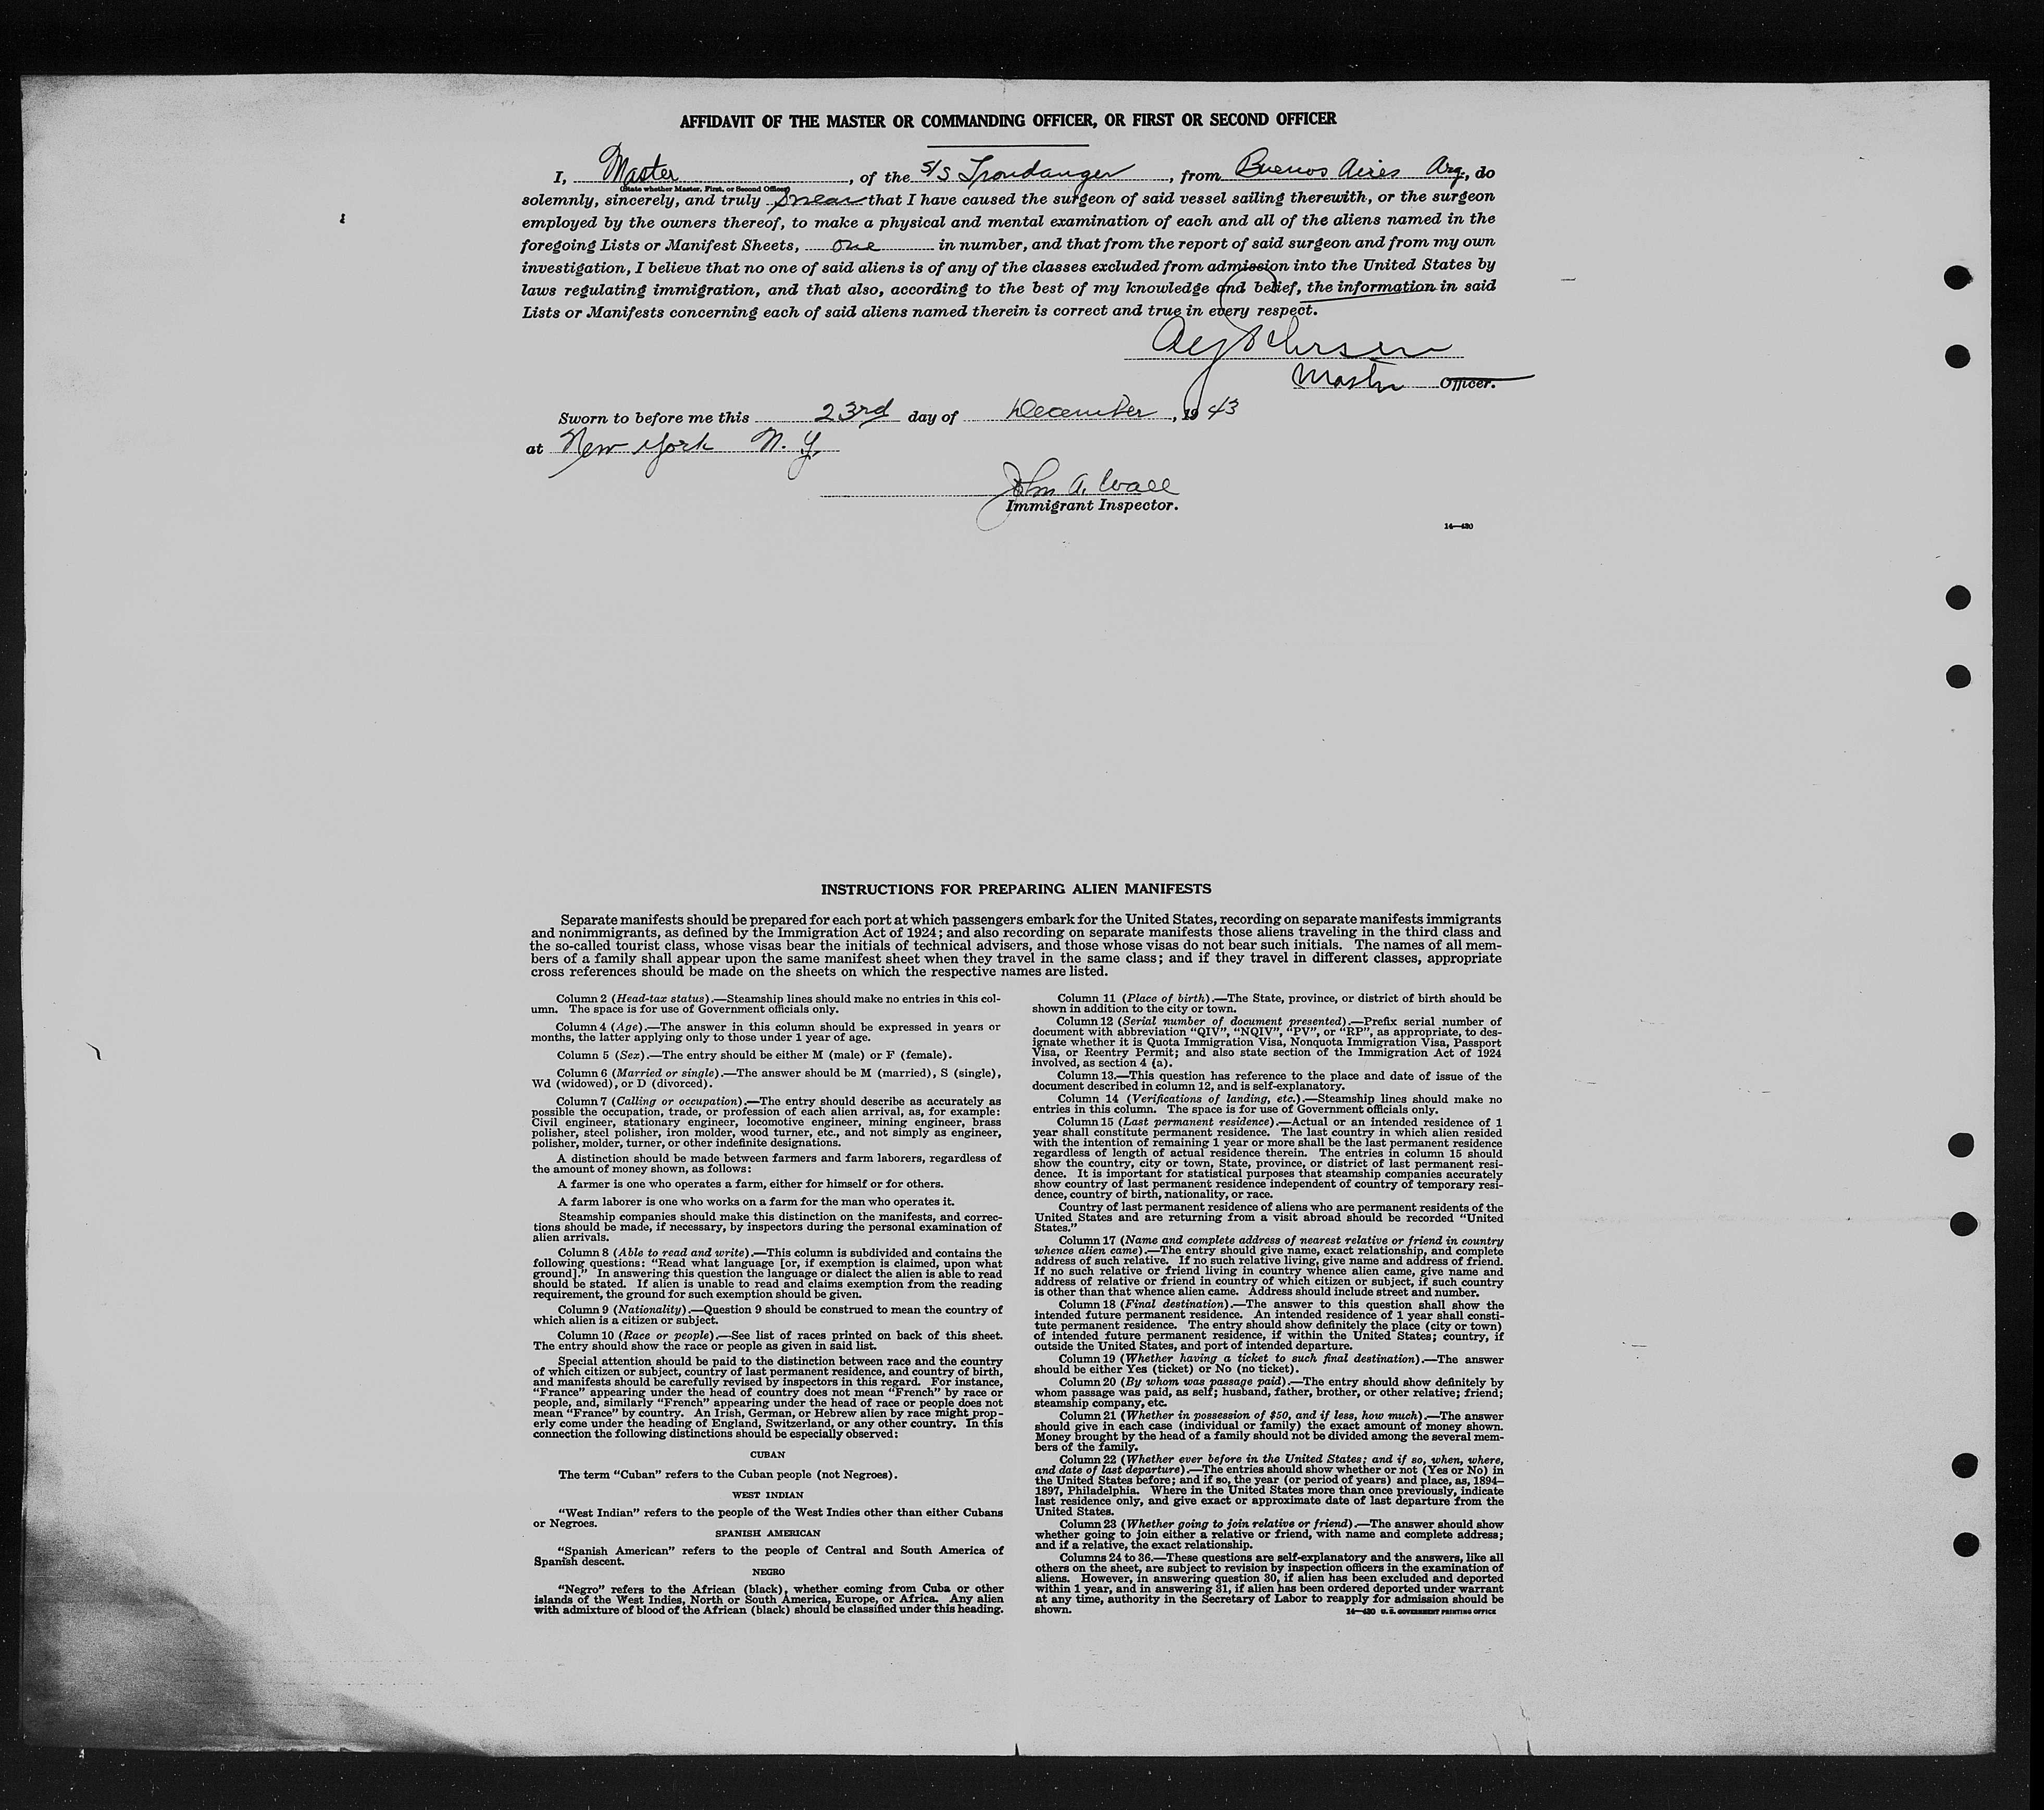 AFFIDAVIT OF THE MASTER OR COMMANDING OFFICER, OR FIRST OR SECOND OFFICER
I, Master, of the S/S Trondanger, from Buenos Aires Arg, do
(State whether Master, First, or Second Officer)
solemnly, sincerely, and truly swear that I have caused the surgeon of said vessel sailing therewith, or the surgeon
employed by the owners thereof, to make a physical and mental examination of each and all of the aliens named in the
foregoing Lists or Manifest Sheets, one in number, and that from the report of said surgeon and from my own
investigation, I believe that no one of said aliens is of any of the classes excluded from admission into the United States by
laws regulating immigration, and that also, according to the best of my knowledge and belief, the information in said
Lists or Manifests concerning each of said aliens named therein is correct and true in every respect.
Master Officer.
Sworn to before me this 23rd day of December, 1943
at New York N. Y.
John A. Wall
Immigrant Inspector.
14—430
INSTRUCTIONS FOR PREPARING ALIEN MANIFESTS
Separate manifests should be prepared for each port at which passengers embark for the United States, recording on separate manifests immigrants
and nonimmigrants, as defined by the Immigration Act of 1924; and also recording on separate manifests those aliens traveling in the third class and
the so-called tourist class, whose visas bear the initials of technical advisers, and those whose visas do not bear such initials. The names of all mem-
bers of a family shall appear upon the same manifest sheet when they travel in the same class; and if they travel in different classes, appropriate
cross references should be made on the sheets on which the respective names are listed.
Column 2 (Head-tax status).—Steamship lines should make no entries in this col-
umn. The space is for use of Government officials only.
Column 4 (Age).—The answer in this column should be expressed in years or
months, the latter applying only to those under 1 year of age.
Column 5 (Sex).—The entry should be either M (male) or F (female).
Column 6 (Married or single).—The answer should be M (married), S (single),
Wd (widowed), or D (divorced).
Column 7 (Calling or occupation).—The entry should describe as accurately as
possible the occupation, trade, or profession of each alien arrival, as, for example:
Civil engineer, stationary engineer, locomotive engineer, mining engineer, brass
polisher, steel polisher, iron molder, wood turner, etc., and not simply as engineer,
polisher, molder, turner, or other indefinite designations.
A distinction should be made between farmers and farm laborers, regardless of
the amount of money shown, as follows:
A farmer is one who operates a farm, either for himself or for others.
A farm laborer is one who works on a farm for the man who operates it.
Steamship companies should make this distinction on the manifests, and correc-
tions should be made, if necessary, by inspectors during the personal examination of
alien arrivals.
Column 8 (Able to read and write).—This column is subdivided and contains the
following questions: “Read what language [or, if exemption is claimed, upon what
ground].” In answering this question the language or dialect the alien is able to read
should be stated. If alien is unable to read and claims exemption from the reading
requirement, the ground for such exemption should be given.
Column 9 (Nationality).—Question 9 should be construed to mean the country of
which alien is a citizen or subject.
Column 10 (Race or people).—See list of races printed on back of this sheet.
The entry should show the race or people as given in said list.
Special attention should be paid to the distinction between race and the country
of which citizen or subject, country of last permanent residence, and country of birth,
and manifests should be carefully revised by inspectors in this regard. For instance,
“France” appearing under the head of country does not mean “French” by race or
people, and, similarly “French” appearing under the head of race or people does not
mean “France” by country. An Irish, German, or Hebrew alien by race might prop-
erly come under the heading of England, Switzerland, or any other country. In this
connection the following distinctions should be especially observed:
CUBAN
The term “Cuban” refers to the Cuban people (not Negroes).
WEST INDIAN
“West Indian” refers to the people of the West Indies other than either Cubans
or Negroes.
SPANISH AMERICAN
“Spanish American” refers to the people of Central and South America of
Spanish descent.
NEGRO
“Negro” refers to the African (black), whether coming from Cuba or other
islands of the West Indies, North or South America, Europe, or Africa. Any alien
with admixture of blood of the African (black) should be classified under this heading.
Column 11 (Place of birth).—The State, province, or district of birth should be
shown in addition to the city or town.
Column 12 (Serial number of document presented).—Prefix serial number of
document with abbreviation “QIV”, “NQIV”, “PV”, or “RP”, as appropriate, to des-
ignate whether it is Quota Immigration Visa, Nonquota Immigration Visa, Passport
Visa, or Reentry Permit; and also state section of the Immigration Act of 1924
involved, as section 4 (a).
Column 13.—This question has reference to the place and date of issue of the
document described in column 12, and is self-explanatory.
Column 14 (Verifications of landing, etc.).—Steamship lines should make no
entries in this column. The space is for use of Government officials only.
Column 15 (Last permanent residence).—Actual or an intended residence of 1
year shall constitute permanent residence. The last country in which alien resided
with the intention of remaining 1 year or more shall be the last permanent residence
regardless of length of actual residence therein. The entries in column 15 should
show the country, city or town, State, province, or district of last permanent resi-
dence. It is important for statistical purposes that steamship companies accurately
show country of last permanent residence independent of country of temporary resi-
dence, country of birth, nationality, or race.
Country of last permanent residence of aliens who are permanent residents of the
United States and are returning from a visit abroad should be recorded “United
States.”
Column 17 (Name and complete address of nearest relative or friend in country
whence alien came).—The entry should give name, exact relationship, and complete
address of such relative. If no such relative living, give name and address of friend.
If no such relative or friend living in country whence alien came, give name and
address of relative or friend in country of which citizen or subject, if such country
is other than that whence alien came. Address should include street and number.
Column 18 (Final destination).—The answer to this question shall show the
intended future permanent residence. An intended residence of 1 year shall consti-
tute permanent residence. The entry should show definitely the place (city or town)
of intended future permanent residence, if within the United States; country, if
outside the United States, and port of intended departure.
Column 19 (Whether having a ticket to such final destination).—The answer
should be either Yes (ticket) or No (no ticket).
Column 20 (By whom was passage paid).—The entry should show definitely by
whom passage was paid, as self; husband, father, brother, or other relative; friend;
steamship company, etc.
Column 21 (Whether in possession of $50, and if less, how much).—The answer
should give in each case (individual or family) the exact amount of money shown.
Money brought by the head of a family should not be divided among the several mem-
bers of the family.
Column 22 (Whether ever before in the United States; and if so, when, where,
and date of last departure).—The entries should show whether or not (Yes or No) in
the United States before; and if so, the year (or period of years) and place, as, 1894–
1897, Philadelphia. Where in the United States more than once previously, indicate
last residence only, and give exact or approximate date of last departure from the
United States.
Column 23 (Whether going to join relative or friend).—The answer should show
whether going to join either a relative or friend, with name and complete address;
and if a relative, the exact relationship.
Columns 24 to 36.—These questions are self-explanatory and the answers, like all
others on the sheet, are subject to revision by inspection officers in the examination of
aliens. However, in answering question 30, if alien has been excluded and deported
within 1 year, and in answering 31, if alien has been ordered deported under warrant
at any time, authority in the Secretary of Labor to reapply for admission should be
shown.
14—430 U. S. GOVERNMENT PRINTING OFFICE